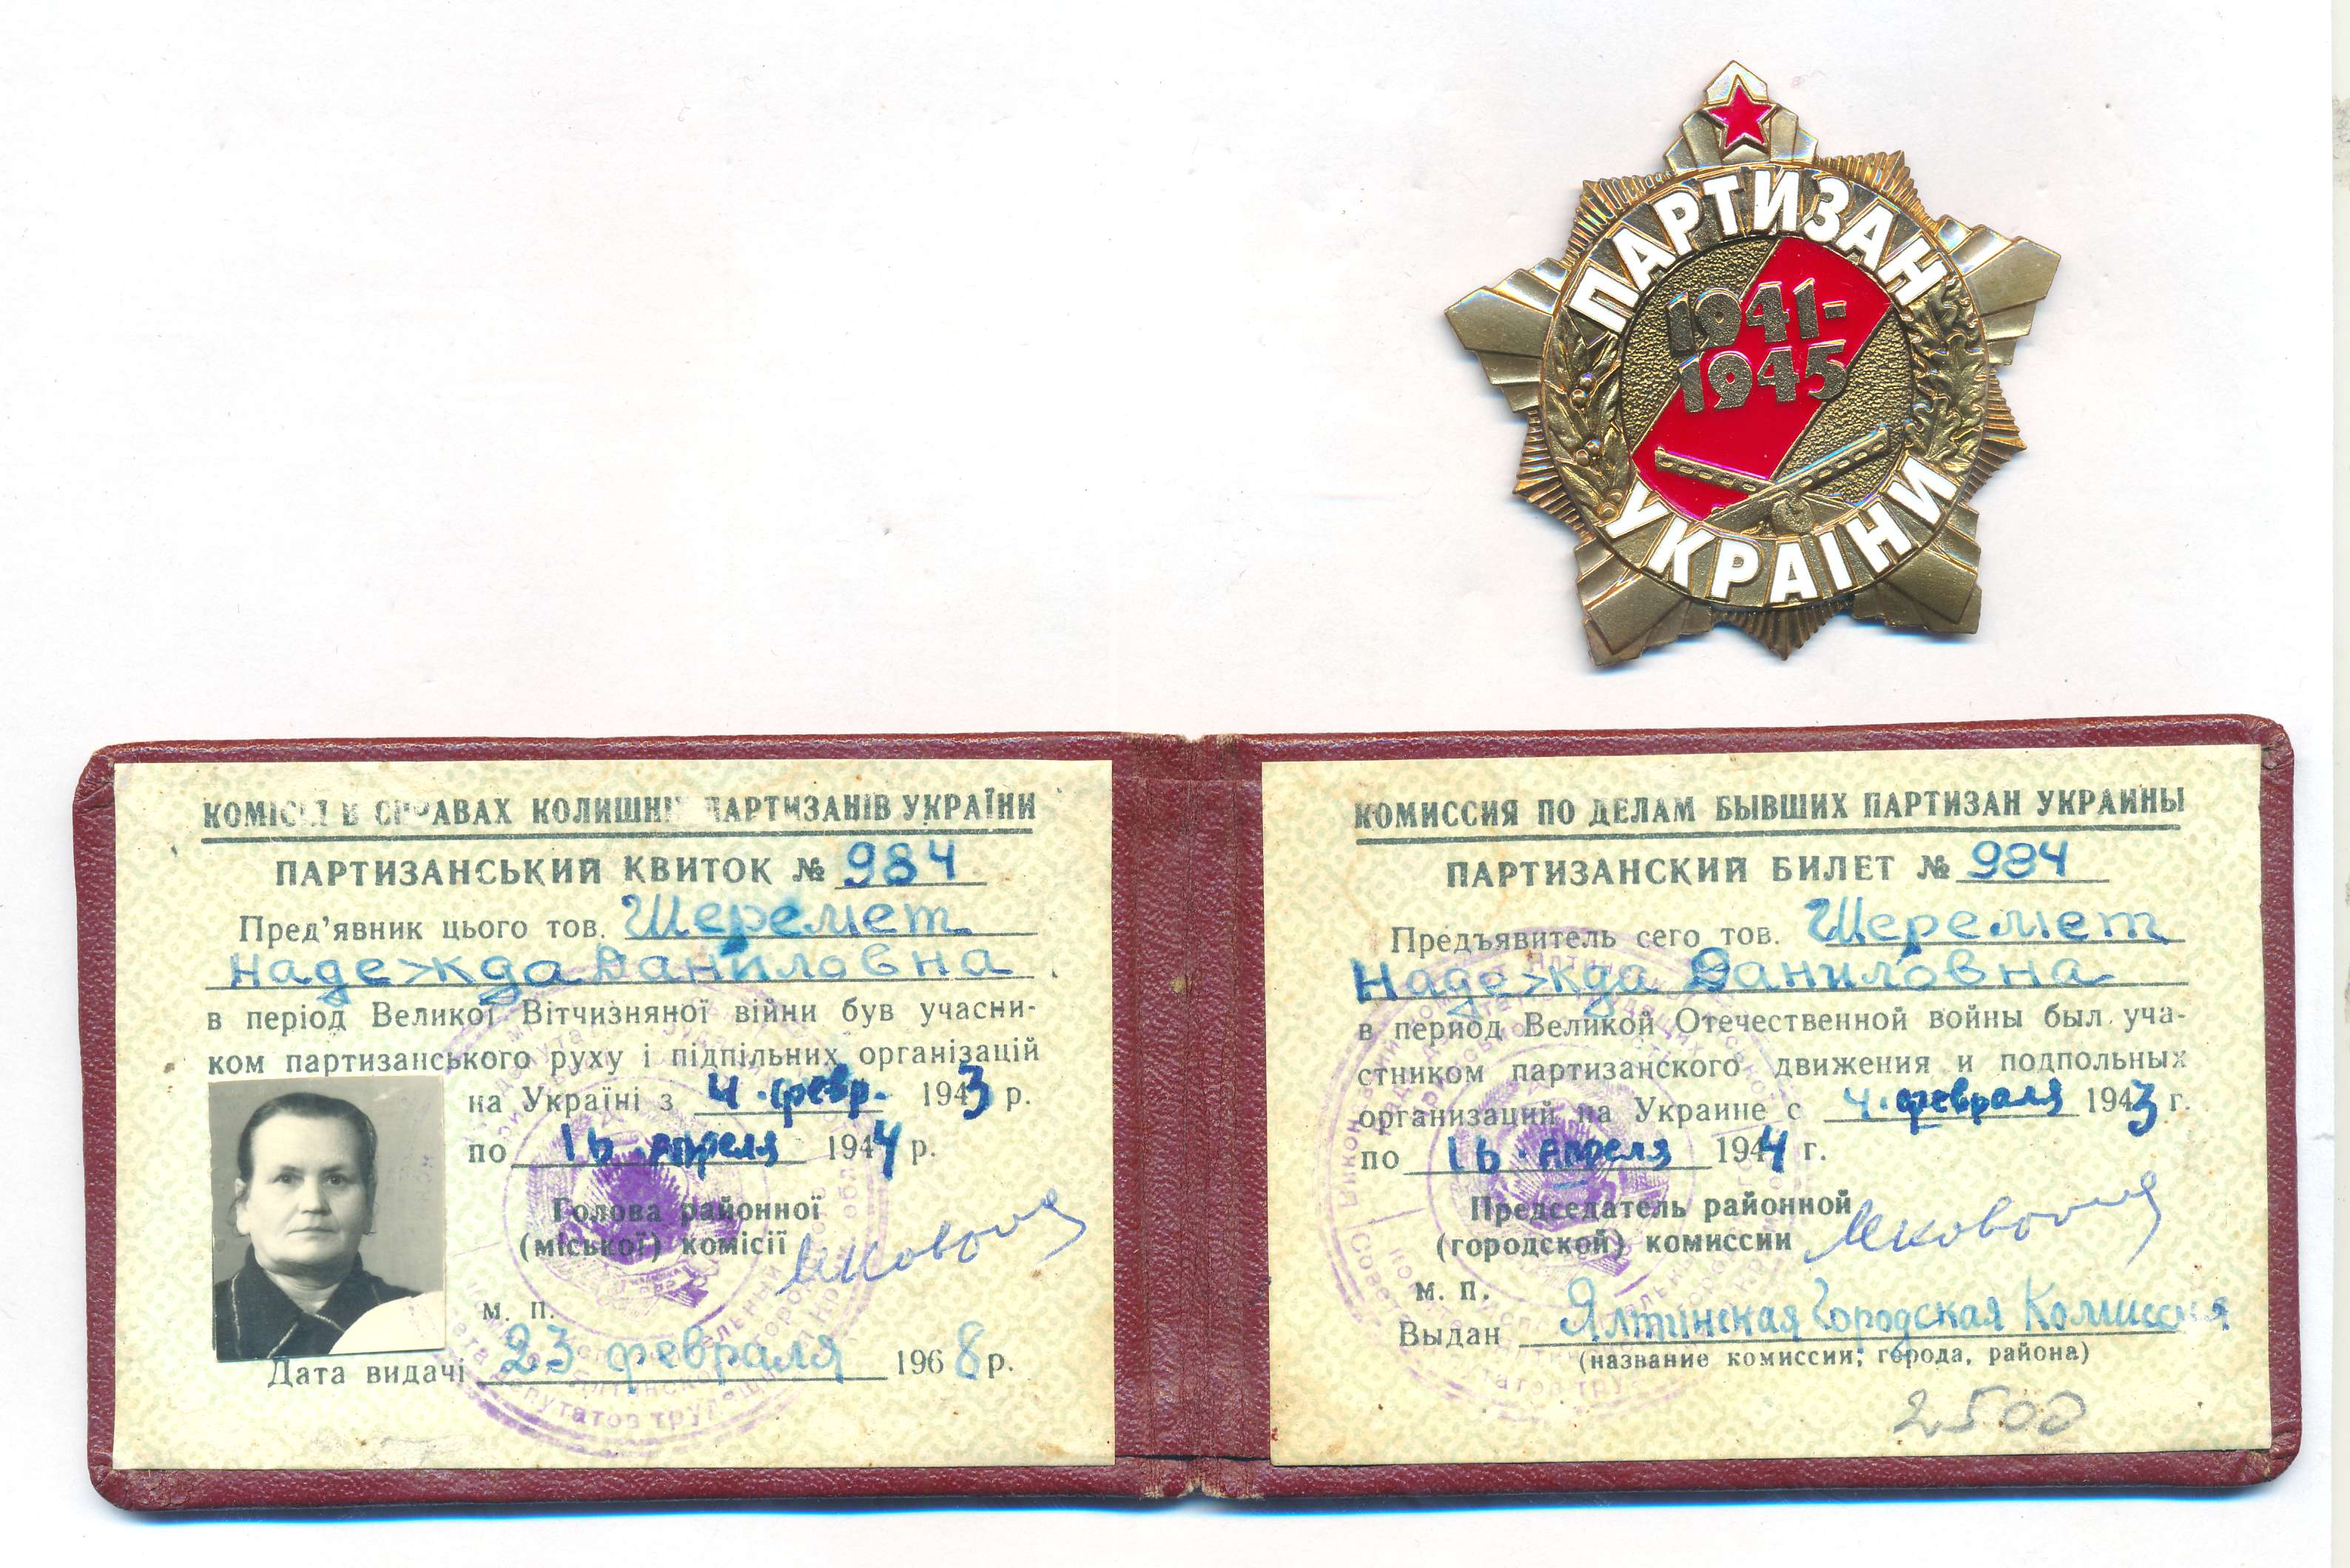 ПАРТИЗАН
1941-
1945
УКРАІНИ
КОМІСІЯ В СПРАВАХ КОЛИШНІХ ПАРТИЗАНІВ УКРАЇНИ
ПАРТИЗАНСЬКИЙ КВИТОК № 984
Пред'явник цього тов. Шеремет
Надежда Даниловна
в період Великої Вітчизняної війни був учасни-
ком партизанського руху і підпільних організацій
на Україні з 4. февр. 1943 р.
по 16. апреля 1944 р.
Голова районної
(міської) комісії
м. п.
Дата видачі 23 февраля 1968 р.
КОМИССИЯ ПО ДЕЛАМ БЫВШИХ ПАРТИЗАН УКРАИНЫ
ПАРТИЗАНСКИЙ БИЛЕТ № 984
Предъявитель сего тов. Шеремет
Надежда Даниловна
в период Великой Отечественной войны был уча-
стником партизанского движения и подпольных
организаций на Украине с 4. февраля 1943 г.
по 16. Апреля 1944 г.
Председатель районной
(городской) комиссии
м. п.
Выдан Ялтинская Городская Комиссия
(название комиссии, города, района)
2500